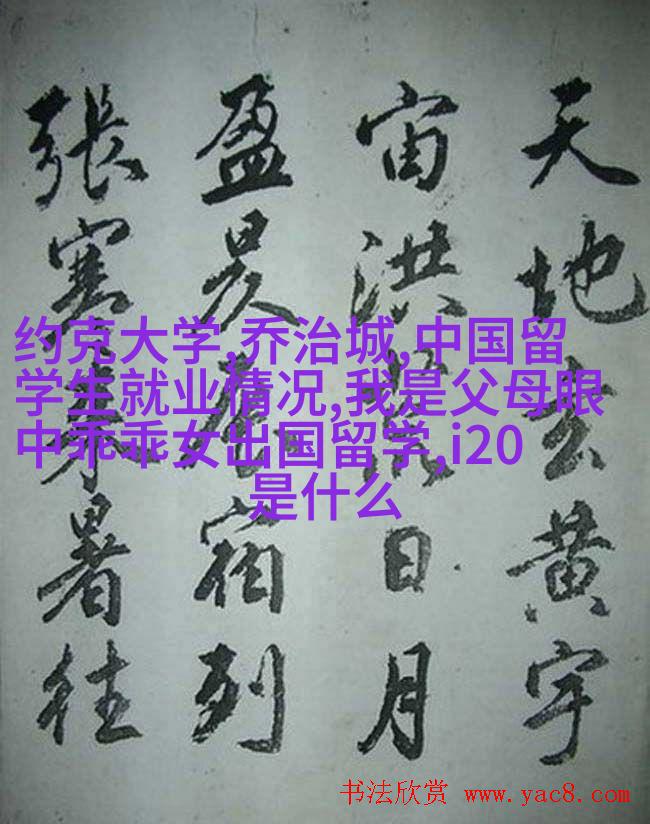 天地玄黄宇
宙洪荒日月
盈昃辰宿列
張寒来暑往
约克大学,乔治城,中国留
学生就业情况,我是父母眼
中乖乖女出国留学,i20
是什么
书法欣赏 www.yac8.com